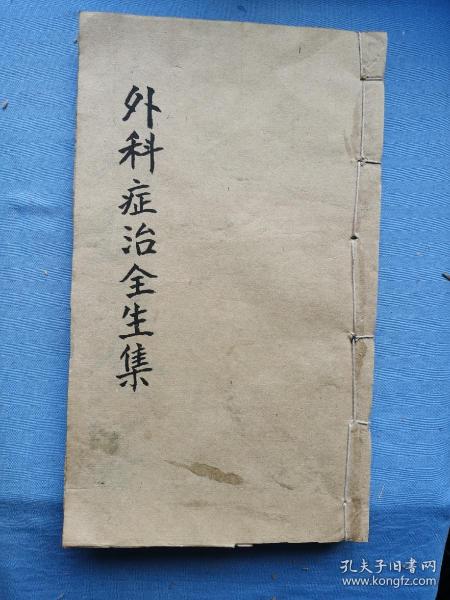 外科症治全生集
孔夫子旧书网
www.kongfz.com